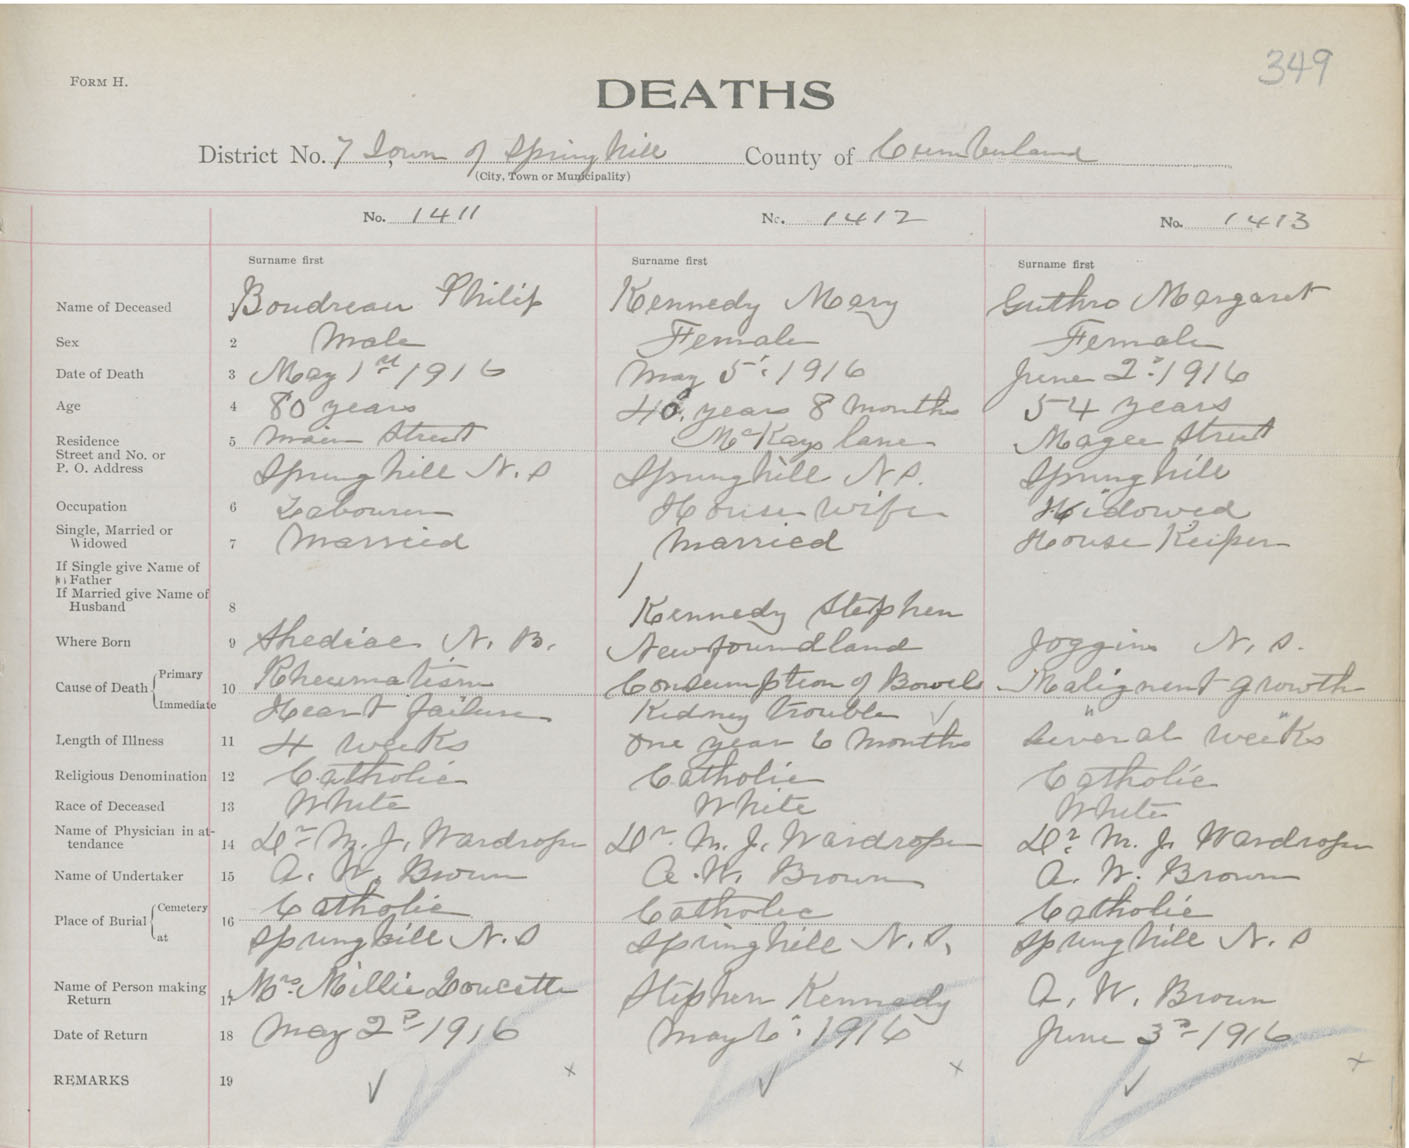 349
FORM H.
DEATHS
District No. 7 Town of Springhill County of Cumberland
(City, Town or Municipality)
No. 1411 No. 1412 No. 1413
Surname first Surname first Surname first
Name of Deceased 1 Boudreau Philip Kennedy Mary Guthro Margaret
Sex 2 Male Female Female
Date of Death 3 May 1st 1916 May 5th 1916 June 2d 1916
Age 4 80 years years 8 months 54 years
Residence 5 Main Street McKays lane Magee Street
Street and No. or
P. O. Address Springhill N.S Springhill N S. Springhill
Occupation 6 Labourer House wife Widowed
Single, Married or
Widowed 7 Married Married House Keeper
If Single give Name of
Father
If Married give Name of
Husband 8 Kennedy Stephen
Where Born 9 Shediac N. B. Newfoundland Joggins N. S.
Cause of Death Primary 10 Rheumatism Consumption of Bowels Malignent growth
Immediate Heart failure Kidney trouble "  "
Length of Illness 11 4 weeks One year 6 months several weeks
Religious Denomination 12 Catholic Catholic Catholic
Race of Deceased 13 White White White
Name of Physician in at-
tendance 14 Dr M. J. Wardrope Dr. M. J. Wardrope Dr. M. J. Wardrope
Name of Undertaker 15 A. W. Brown A. W. Brown A. W. Brown
Place of Burial Cemetery 16 Catholic Catholic Catholic
at Springhill N. S Springhill N. S. Springhill N. S
Name of Person making
Return 17 Mrs. Millie Doucette Stephen Kennedy A. W. Brown
Date of Return 18 May 2d 1916 May 6th 1916 June 3d 1916
REMARKS 19